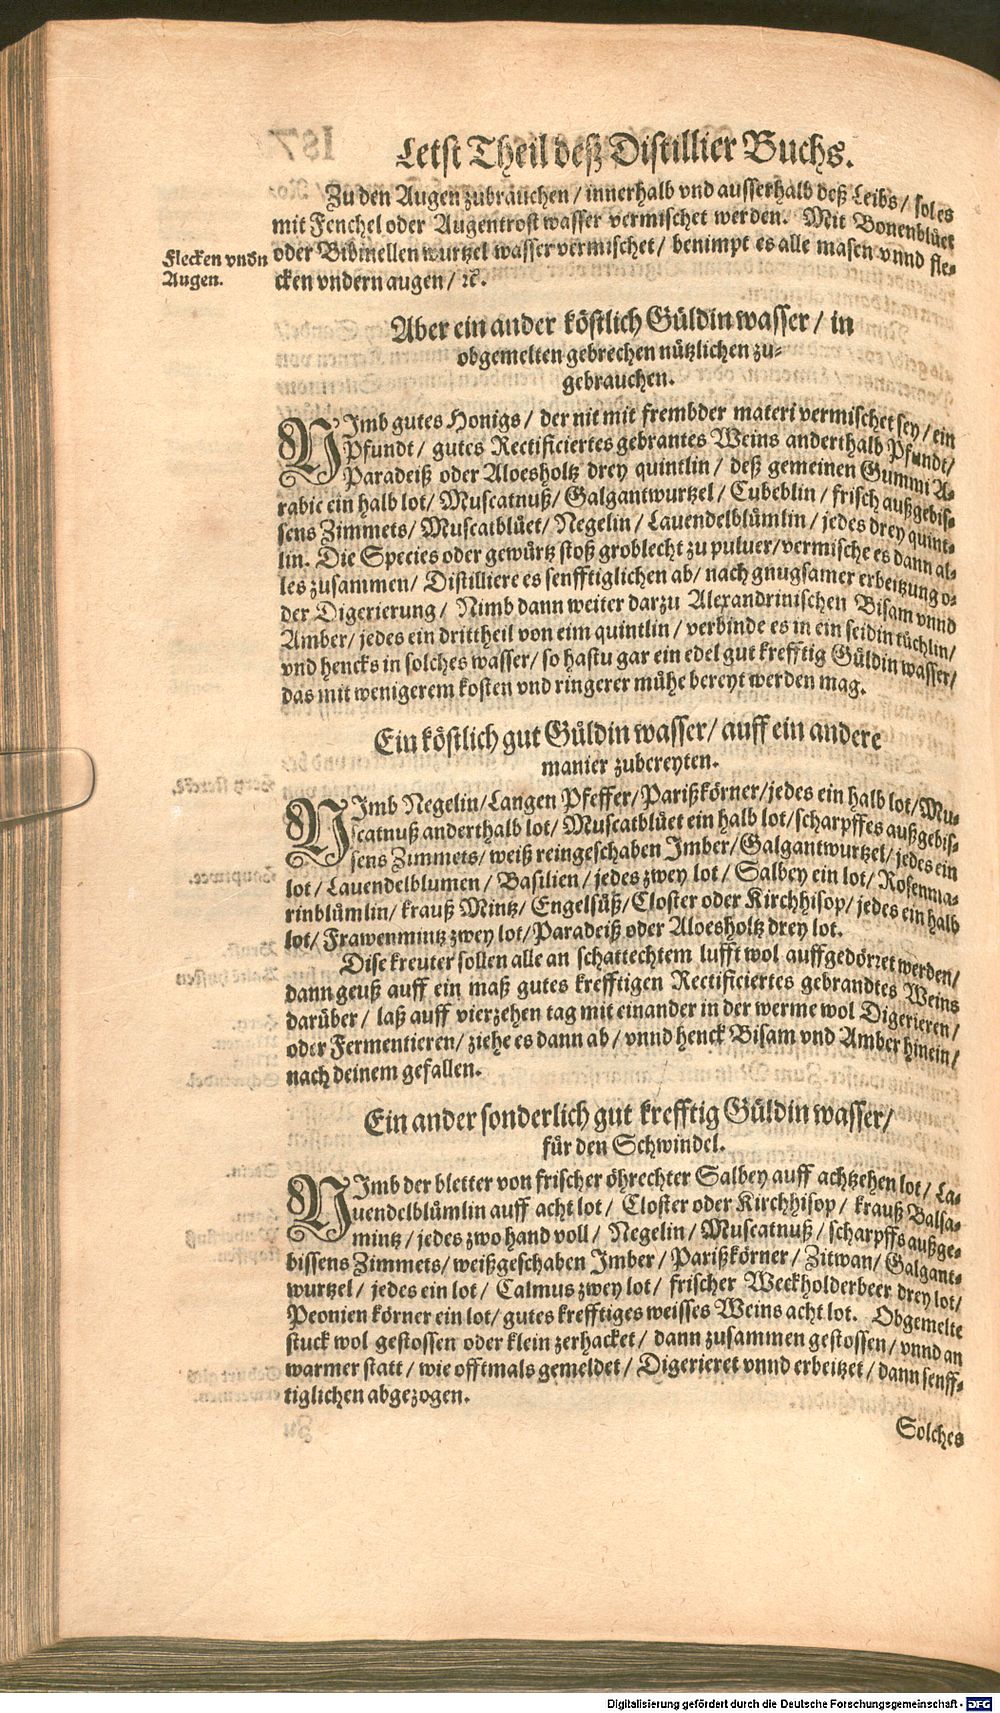 Letst Theil deß Distillier Buchs.
Zu den Augen zubrauchen / innerhalb vnd ausserhalb deß Leibs / sol es
mit Fenchel oder Augentrost wasser vermischet werden. Mit Bonenblüet
oder Bibinellen wurtzel wasser vermischet / benimpt es alle masen vnnd fle-
cken vndern augen / ꝛc.
Flecken vndn
Augen.
Aber ein ander köstlich Güldin wasser / in
obgemelten gebrechen nützlichen zu-
gebrauchen.
NImb gutes Honigs / der nit mit frembder materi vermischet sey / ein
Pfundt / gutes Rectificiertes gebrantes Weins anderthalb Pfundt /
Paradeiß oder Aloesholtz drey quintlin / deß gemeinen Gummi A-
rabic ein halb lot / Muscatnuß / Galgantwurtzel / Cubeblin / frisch außgebis-
sens Zimmets / Muscatblüet / Negelin / Lauendelblümlin / jedes drey quint-
lin. Die Species oder gewürtz stoß groblecht zu puluer / vermische es dann al-
les zusammen / Distilliere es senfftiglichen ab / nach gnugsamer erbeitzung o-
der Digerierung / Nimb dann weiter darzu Alexandrinischen Bisam vnnd
Amber / jedes ein drittheil von eim quintlin / verbinde es in ein seidin tüchlin /
vnd hencks in solches wasser / so hastu gar ein edel gut krefftig Güldin wasser /
das mit wenigerem kosten vnd ringerer mühe bereyt werden mag.
Ein köstlich gut Güldin wasser / auff ein andere
manier zubereyten.
NImb Negelin / Langen Pfeffer / Parißkörner / jedes ein halb lot / Mu-
scatnuß anderthalb lot / Muscatblüet ein halb lot / scharpffes außgebis-
sens Zimmets / weiß reingeschaben Imber / Galgantwurtzel / jedes ein
lot / Lauendelblumen / Basilien / jedes zwey lot / Salbey ein lot / Rosenma-
rinblümlin / krauß Mintz / Engelsüß / Closter oder Kirchhisop / jedes ein halb
lot / Frawenmintz zwey lot / Paradeiß oder Aloesholtz drey lot.
Dise kreuter sollen alle an schattechtem lufft wol auffgedörret werden /
dann geuß auff ein maß gutes krefftigen Rectificiertes gebrandtes Weins
darüber / laß auff vierzehen tag mit einander in der werme wol Digerieren /
oder Fermentieren / ziehe es dann ab / vnnd henck Bisam vnd Amber hinein /
nach deinem gefallen.
Ein ander sonderlich gut krefftig Güldin wasser /
für den Schwindel.
NImb der bletter von frischer öhrechter Salbey auff achtzehen lot / La-
uendelblümlin auff acht lot / Closter oder Kirchhisop / krauß Balsa-
mintz / jedes zwo hand voll / Negelin / Muscatnuß / scharpffs außge-
bissens Zimmets / weißgeschaben Imber / Parißkörner / Zitwan / Galgant-
wurtzel / jedes ein lot / Calmus zwey lot / frischer Weckholderbeer drey lot /
Peonien körner ein lot / gutes krefftiges weisses Weins acht lot. Obgemelte
stuck wol gestossen oder klein zerhacket / dann zusammen gestossen / vnnd an
warmer statt / wie offtmals gemeldet / Digerieret vnnd erbeitzet / dann senff-
tiglichen abgezogen.
Solches
Digitalisierung gefördert durch die Deutsche Forschungsgemeinschaft - DFG